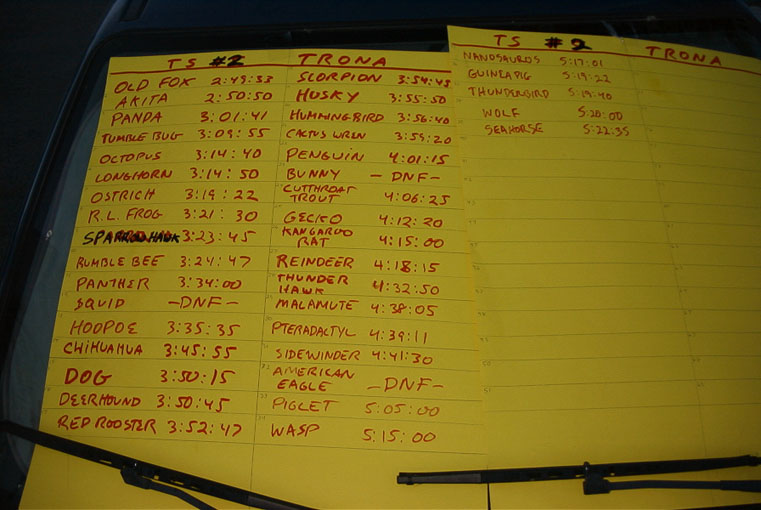 TS #2 TRONA
OLD FOX 2:49:33
AKITA 2:50:50
PANDA 3:01:41
TUMBLE BUG 3:09:55
OCTOPUS 3:14:40
LONGHORN 3:14:50
OSTRICH 3:19:22
R.L. FROG 3:21:30
SPARROWHAWK 3:23:45
RUMBLE BEE 3:24:47
PANTHER 3:34:00
SQUID -DNF-
HOOPOE 3:35:35
CHIHUAHUA 3:45:55
DOG 3:50:15
DEERHOUND 3:50:45
RED ROOSTER 3:52:47
SCORPION 3:54:45
HUSKY 3:55:50
HUMMINGBIRD 3:56:40
CACTUS WREN 3:59:20
PENGUIN 4:01:15
BUNNY -DNF-
CUTTHROAT
TROUT 4:06:25
GECKO 4:12:20
KANGAROO
RAT 4:15:00
REINDEER 4:18:15
THUNDER
HAWK 4:32:50
MALAMUTE 4:38:05
PTERADACTYL 4:39:11
SIDEWINDER 4:41:30
AMERICAN
EAGLE -DNF-
PIGLET 5:05:00
WASP 5:15:00
TS #2 TRONA
NANOSAUROS 5:17:01
GUINEA PIG 5:19:22
THUNDERBIRD 5:19:40
WOLF 5:20:00
SEAHORSE 5:22:35